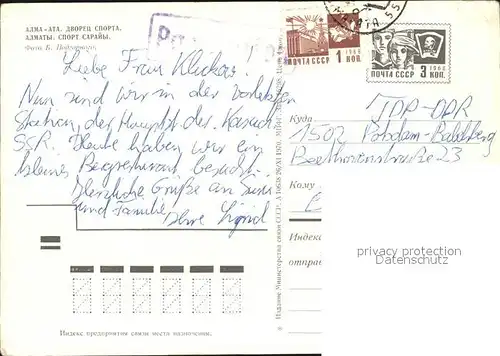 АЛМА-АТА. ДВОРЕЦ СПОРТА.
АЛМАТЫ. СПОРТ САРАЙЫ.
Фото Б. Подгорного
Liebe Frau Klickow!
Nun sind wir in der vorletzten
Station, der Hauptst. der Kasach.
SSR. Heute haben wir ein
kleines Bergrestaurant besucht.
Herzliche Grüße an Sie
und Familie
Ihre Sigrid
1 КОП.
ПОЧТА СССР
1968
3 КОП.
Куда
TDP-DDR
1502 Potsdam-Babelsberg
Beethovenstraße 23
Кому
Индекс
отправ
privacy protection
Datenschutz
Издание Министерства связи СССР.
Индекс предприятия связи места назначения.